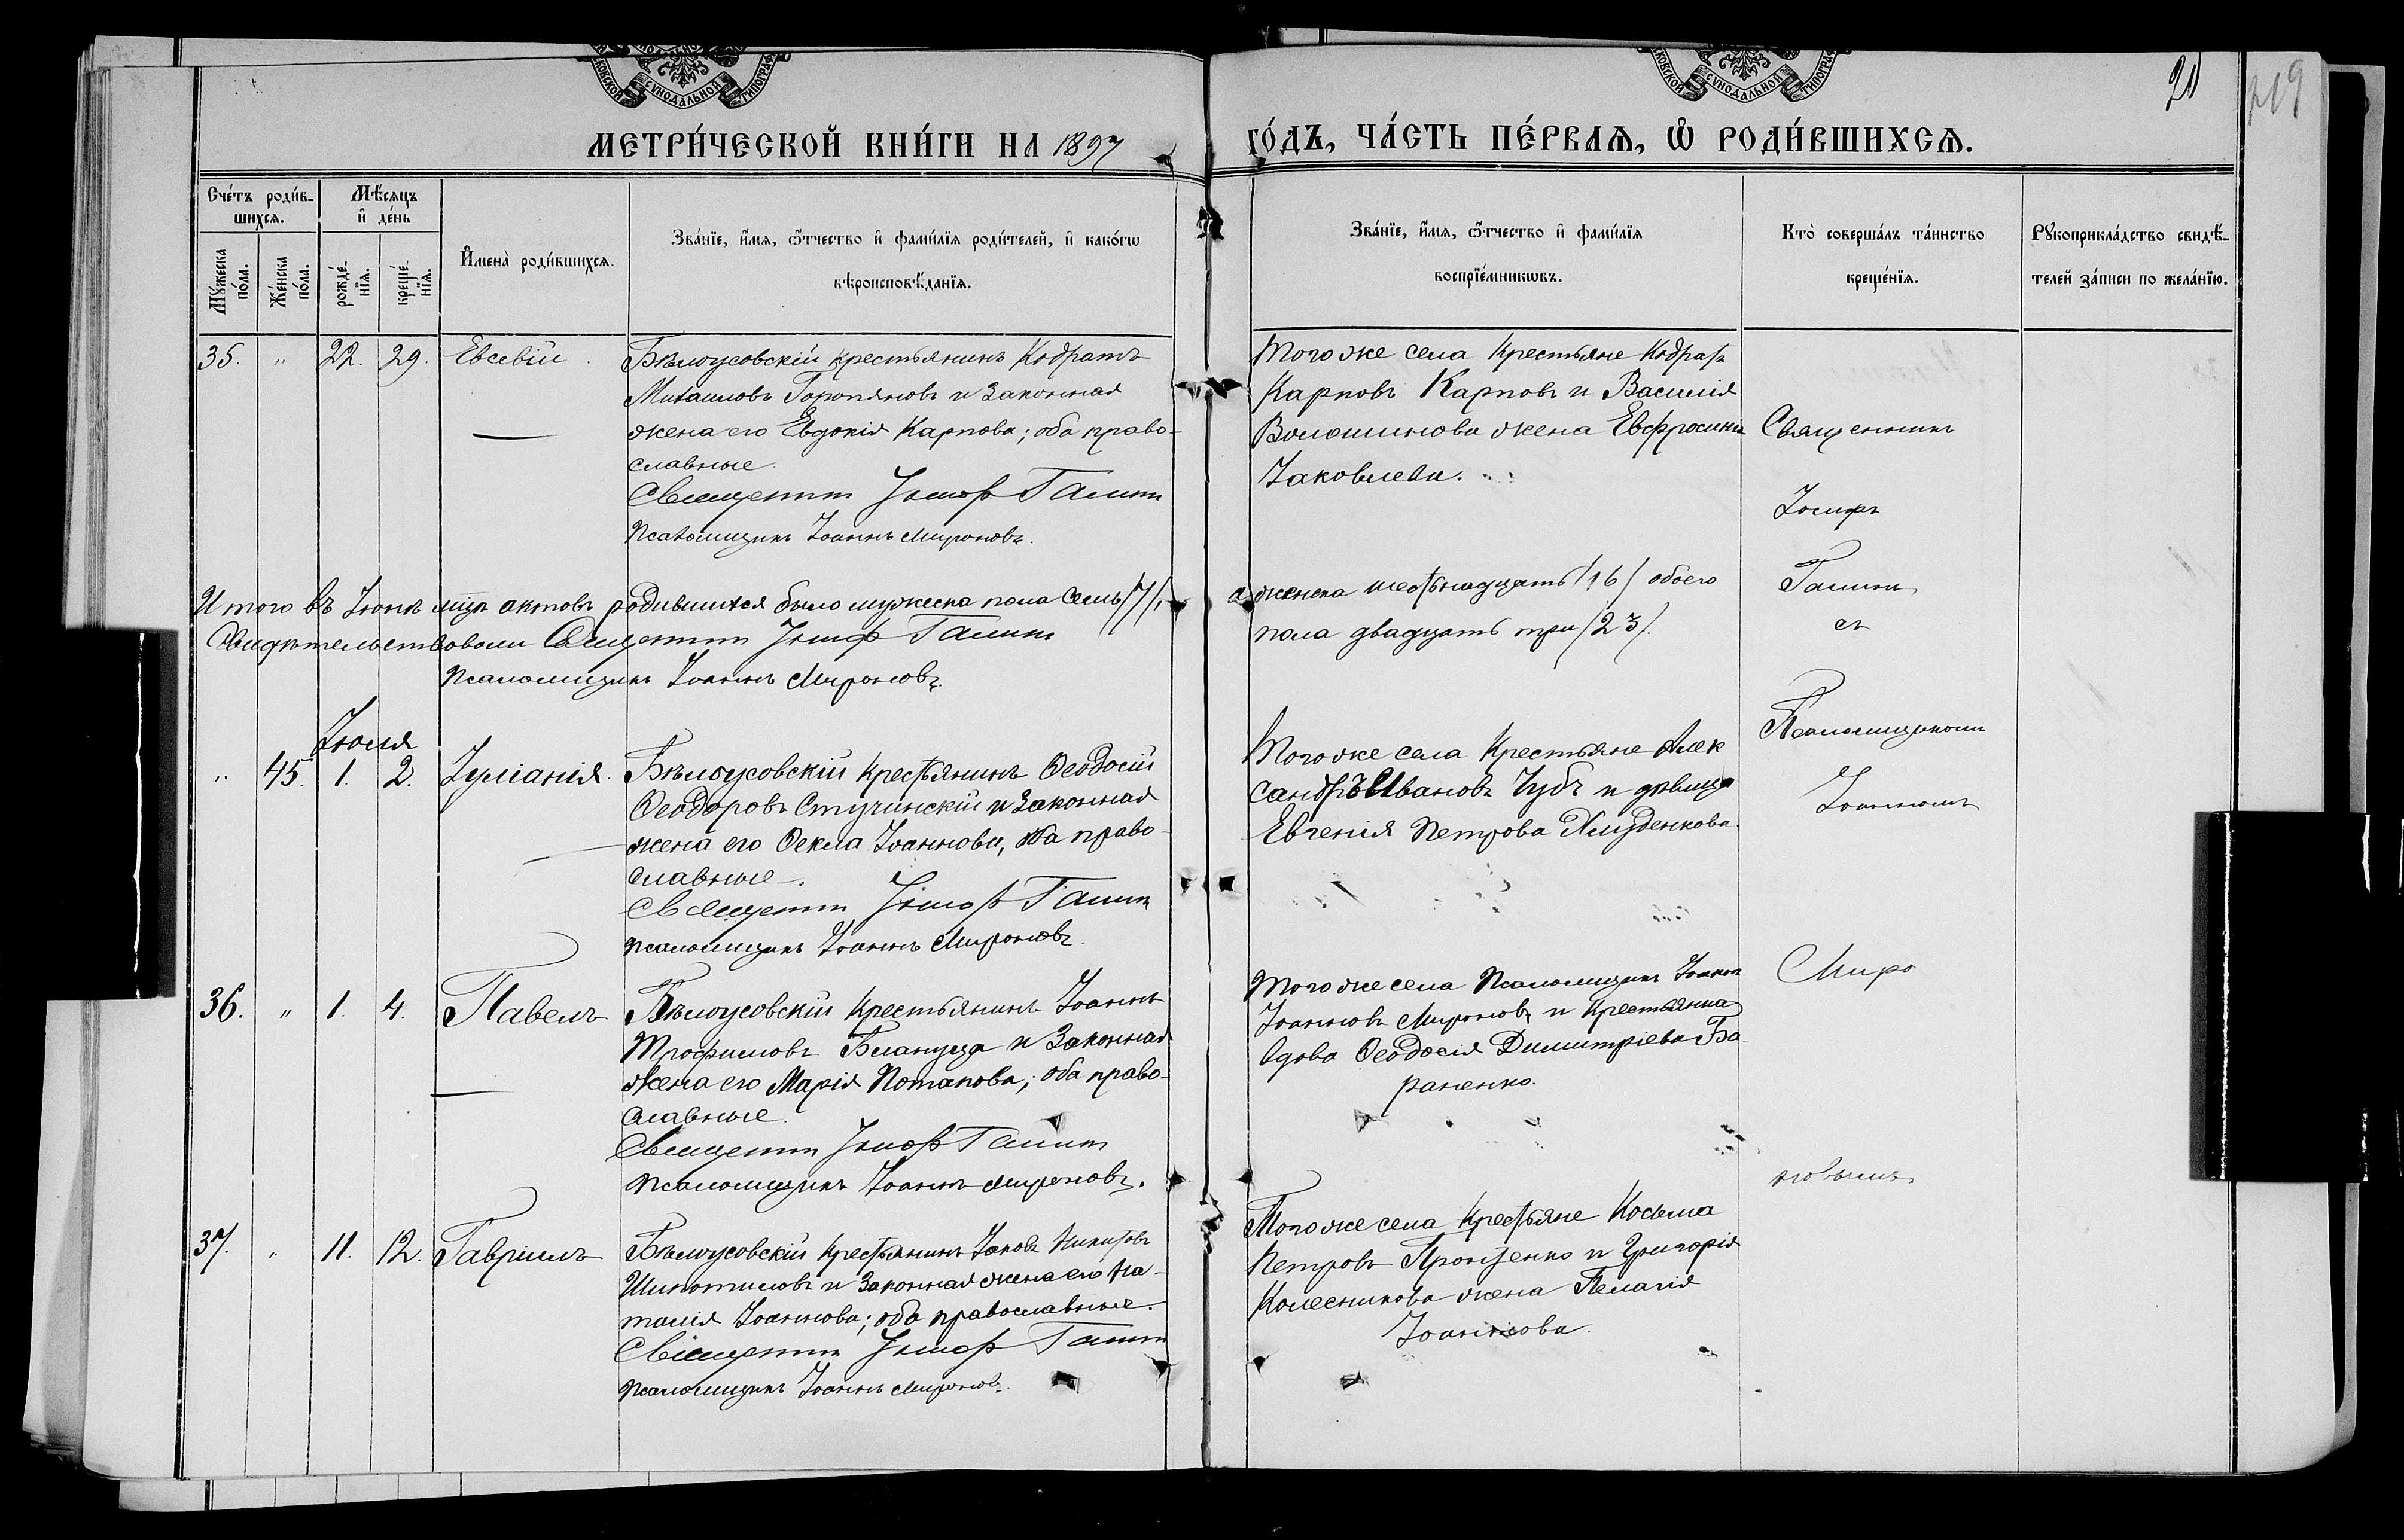 МОСКОВСКОЙ СѴНОДАЛЬНОЙ ТИПОГРАФ
КОВСКОЙ СѴНОДАЛЬНОЙ ТИПОГРА
21
219
МЕТРИ́ЧЕСКОЙ КНИ́ГИ НА 1897 ГО́ДЪ, ЧА́СТЬ ПЕ́РВАѦ, Ѽ РОДИ́ВШИХСѦ.
Сче́тъ роди́в-
шихсѧ.
Мѣ́сѧцъ
и҆ де́нь
Мꙋ́жеска
по́ла.
Же́нска
по́ла.
рожде́-
нїѧ.
креще́-
нїѧ.
И҆мена̀ роди́вшихсѧ.
Зва́нїе, и҆́мѧ, ѻ҆́тчество и҆ фами́лїѧ роди́телей, и҆ како́гѡ
вѣроисповѣ́данїѧ.
Зва́нїе, и҆́мѧ, ѻ҆́тчество и҆ фами́лїѧ
воспрїе́мникѡвъ.
Кто̀ соверша́лъ та́инство
креще́нїѧ.
Рꙋкоприкла́дство свидѣ́-
телей за́писи по жела́нїю.
35. " 22. 29. Евсевій. Бѣлоусовскій крестьянинъ Кодратъ
Михаиловъ Горопяновъ и законная
жена его Евдокія Карпова; оба право-
славные.
Священникъ Іосифъ Галинъ
Псаломщикъ Іоаннъ Мироновъ.
Того же села Крестьяне Кодратъ
Карповъ Карповъ и Василія
Волошинова жена Евфросинія
Іаковлева.
Священникъ
Іосифъ
Галинъ
съ
Псаломщикомъ
Іоанномъ
Миро
новымъ
Итого въ Іюнѣ мцѣ актовъ родившихся было мужеска пола семь /7/,
а женска шестьнадцать /16/ обоего
пола двадцать три /23/.
Свидѣтельствовали Священникъ Іосифъ Галинъ
Псаломщикъ Іоаннъ Мироновъ.
Іюля
" 45. 1. 2. Іуліанія. Бѣлоусовскій крестьянинъ Ѳеодосій
Ѳеодоровъ Стучинскій и законная
жена его Ѳекла Іоаннова, оба право-
славные.
Священникъ Іосифъ Галинъ
Псаломщикъ Іоаннъ Мироновъ.
Того же села Крестьяне Алек
сандръ Ивановъ Чубъ и дѣвица
Евгенія Петрова Хлуденкова.
36. " 1. 4. Павелъ Бѣлоусовскій Крестьянинъ Іоаннъ
Трофимовъ Блануца и законная
жена его Марія Потапова; оба право-
славные.
Священникъ Іосифъ Галинъ
Псаломщикъ Іоаннъ Мироновъ.
Того же села Псаломщикъ Іоаннъ
Іоанновъ Мироновъ и Крестьянка
вдова Ѳеодосія Димитріева Ба
раненко.
37. " 11. 12. Гавріилъ Бѣлоусовскій Крестьянинъ Іаковъ Никитовъ
Шипотиловъ и законная жена его На-
талія Іоаннова; оба православные.
Священникъ Іосифъ Галинъ
Псаломщикъ Іоаннъ Мироновъ.
Того же села Крестьяне Косьма
Петровъ Проценко и Григорія
Колесникова жена Пелагія
Іоаннова.